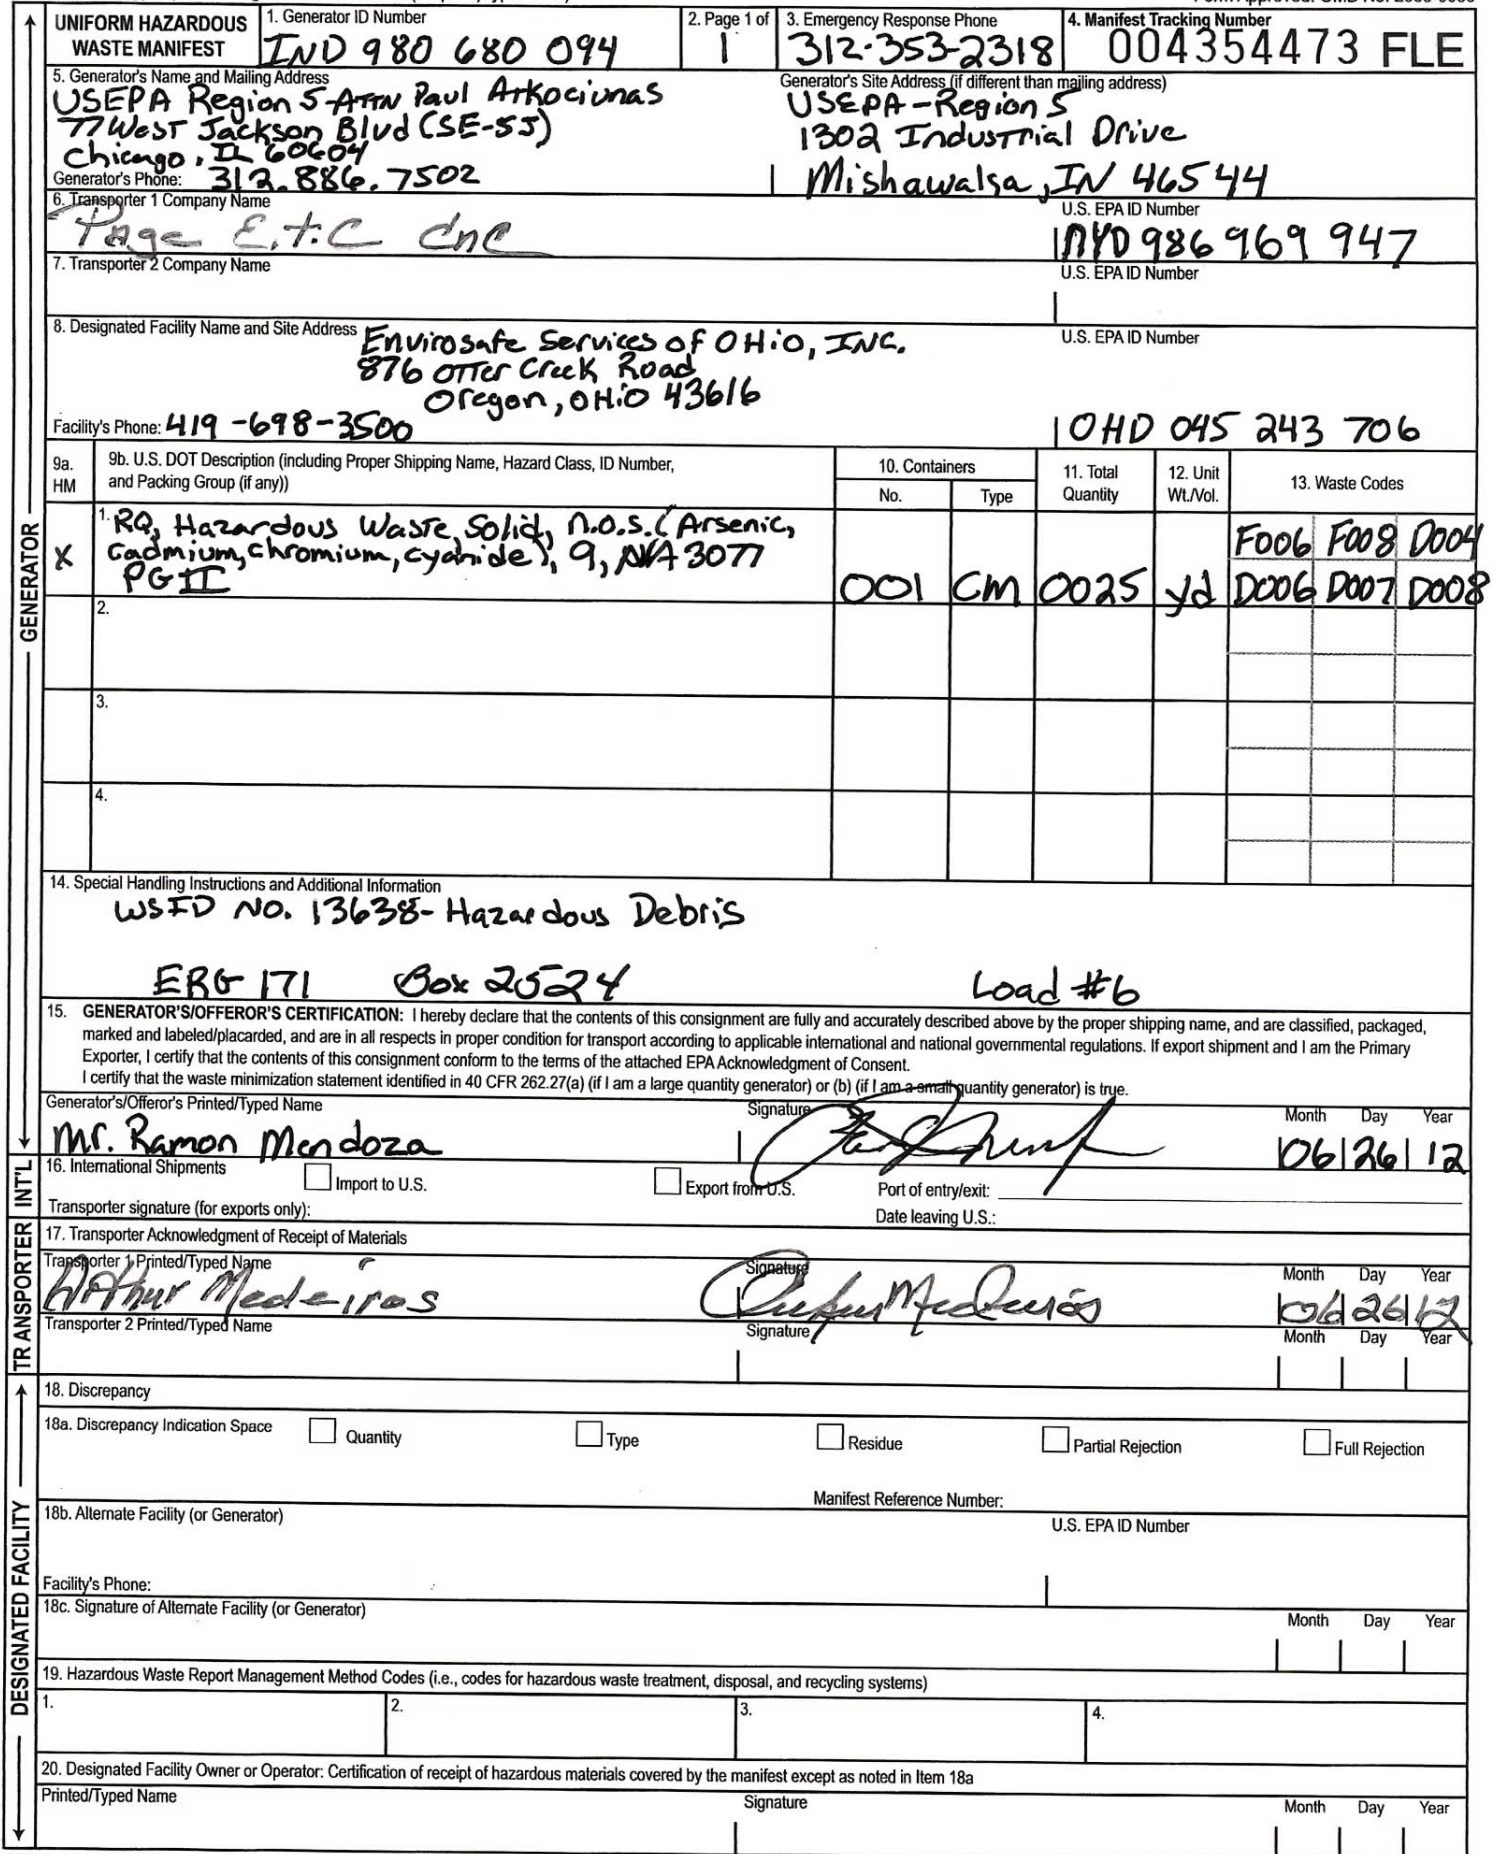 UNIFORM HAZARDOUS WASTE MANIFEST
1. Generator ID Number
IND 980 680 094
2. Page 1 of
1
3. Emergency Response Phone
312-353-2318
4. Manifest Tracking Number
004354473 FLE
5. Generator's Name and Mailing Address
USEPA Region 5-ATTN Paul Atkociunas
77 West Jackson Blvd (SE-5J)
Chicago, IL 60604
Generator's Phone: 312.886.7502
Generator's Site Address (if different than mailing address)
USEPA-Region 5
1302 Industrial Drive
Mishawalsa, IN 46544
6. Transporter 1 Company Name
Page E.T.C Inc
U.S. EPA ID Number
NYD 986 969 947
7. Transporter 2 Company Name
U.S. EPA ID Number
8. Designated Facility Name and Site Address
Envirosafe Services of OHiO, INC.
876 OTTer Creek Road
Oregon, OHiO 43616
U.S. EPA ID Number
Facility's Phone: 419-698-3500
OHD 045 243 706
9a. HM
9b. U.S. DOT Description (including Proper Shipping Name, Hazard Class, ID Number, and Packing Group (if any))
10. Containers
No.
Type
11. Total Quantity
12. Unit Wt./Vol.
13. Waste Codes
X
1. RQ, Hazardous Waste, Solid, n.o.s. (Arsenic,
Cadmium, chromium, cyanide), 9, NA 3077
PG III
001
CM
0025
yd
F006 F008 D004
D006 D007 D008
2.
3.
4.
14. Special Handling Instructions and Additional Information
WSID NO. 13638- Hazardous Debris
ERG 171 Box 2524 Load #6
15. GENERATOR'S/OFFEROR'S CERTIFICATION: I hereby declare that the contents of this consignment are fully and accurately described above by the proper shipping name, and are classified, packaged,
marked and labeled/placarded, and are in all respects in proper condition for transport according to applicable international and national governmental regulations. If export shipment and I am the Primary
Exporter, I certify that the contents of this consignment conform to the terms of the attached EPA Acknowledgment of Consent.
I certify that the waste minimization statement identified in 40 CFR 262.27(a) (if I am a large quantity generator) or (b) (if I am a small quantity generator) is true.
Generator's/Offeror's Printed/Typed Name
Signature
Month Day Year
Mr. Ramon Mendoza
06 26 12
16. International Shipments
Import to U.S.
Export from U.S.
Port of entry/exit:
Transporter signature (for exports only):
Date leaving U.S.:
17. Transporter Acknowledgment of Receipt of Materials
Transporter 1 Printed/Typed Name
Signature
Month Day Year
Arthur Medeiros
Arthur Medeiros
06 26 12
Transporter 2 Printed/Typed Name
Signature
Month Day Year
18. Discrepancy
18a. Discrepancy Indication Space
Quantity
Type
Residue
Partial Rejection
Full Rejection
Manifest Reference Number:
18b. Alternate Facility (or Generator)
U.S. EPA ID Number
Facility's Phone:
18c. Signature of Alternate Facility (or Generator)
Month Day Year
19. Hazardous Waste Report Management Method Codes (i.e., codes for hazardous waste treatment, disposal, and recycling systems)
1.
2.
3.
4.
20. Designated Facility Owner or Operator: Certification of receipt of hazardous materials covered by the manifest except as noted in Item 18a
Printed/Typed Name
Signature
Month Day Year
GENERATOR
INT'L
TRANSPORTER
DESIGNATED FACILITY